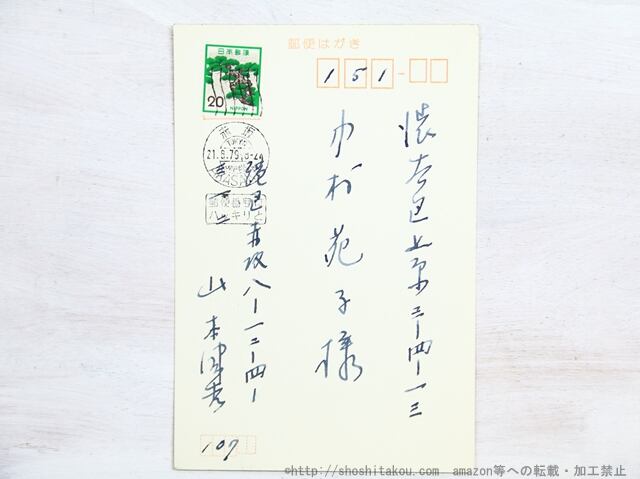 郵便はがき
151-
日本郵便
20
NIPPON
赤坂
21.8.79.8-24
AKASAKA
郵便番号
ハッキリと
渋谷区上原三ー四ー一三
中村苑子様
港区赤坂八ー一二ー四ー
山本健吉
107
©http://shoshitakou.com amazon等への転載・加工禁止